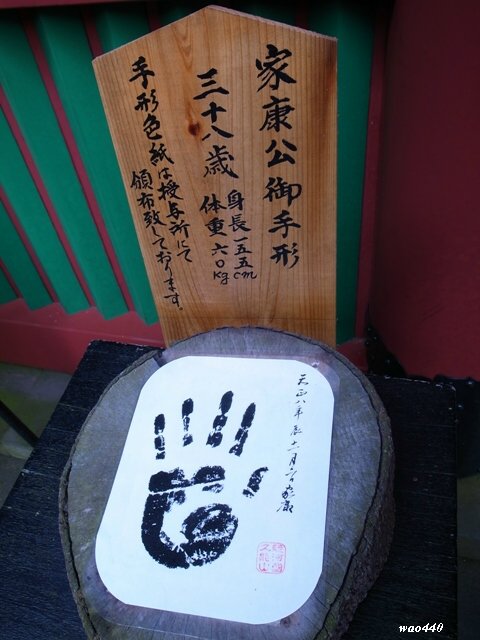 家康公御手形
三十八歳
身長一五五cm
体重六〇kg
手形色紙は授与所にて
頒布致しております。
天正八年辰
家康
久能山
wao440